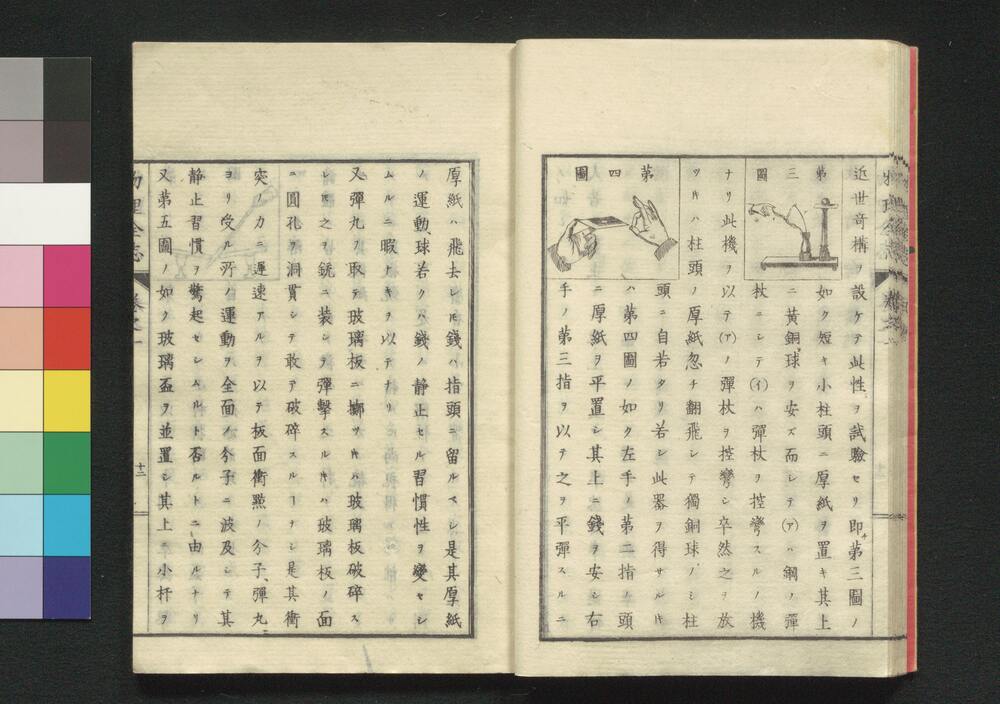 近世奇構ヲ設ケテ此性ヲ試驗セリ即第三圖ノ
如ク短キ小柱頭ニ厚紙ヲ置キ其上
ニ黄銅球ヲ安ズ而シテ(ア)ハ鋼ノ彈
杖ニシテ(イ)ハ彈杖ヲ控彎スルノ機
第三圖
ナリ此機ヲ以テ(ア)ノ彈杖ヲ控彎シ卒然之ヲ放
ツ𪜈ハ柱頭ノ厚紙忽チ翻飛シテ獨銅球ノミ柱
頭ニ自若タリ若シ此器ヲ得サル𪜈
ハ第四圖ノ如ク左手ノ第二指ノ頭
ニ厚紙ヲ平置シ其上ニ錢ヲ安シ右
手ノ第三指ヲ以テ之ヲ平彈スルニ
第四圖
厚紙ハ飛去シ𪜈錢ハ指頭ニ留ルベシ是其厚紙
ノ運動球若クハ錢ノ靜止セル習慣性ヲ變セシ
ムルニ暇ナキヲ以テナリ
又彈丸ヲ取テ玻璃板ニ擲ツ𪜈ハ玻璃板破碎ス
レ𪜈之ヲ銃ニ裝シテ彈擊スル𪜈ハ玻璃板ノ面
ニ圓孔ヲ洞貫シテ敢テ破碎スルヿナシ是其衝
突ノ力ニ遲速アルヲ以テ板面衝㸃ノ分子彈丸
ヨリ受ル所ノ運動ヲ全面ノ分子ニ波及シテ其
靜止習慣ヲ驚起セシムルト否ルトニ由ルナリ
又第五圖ノ如ク玻璃盃ヲ並置シ其上ニ小杆ヲ
物理全志
卷之一
十二